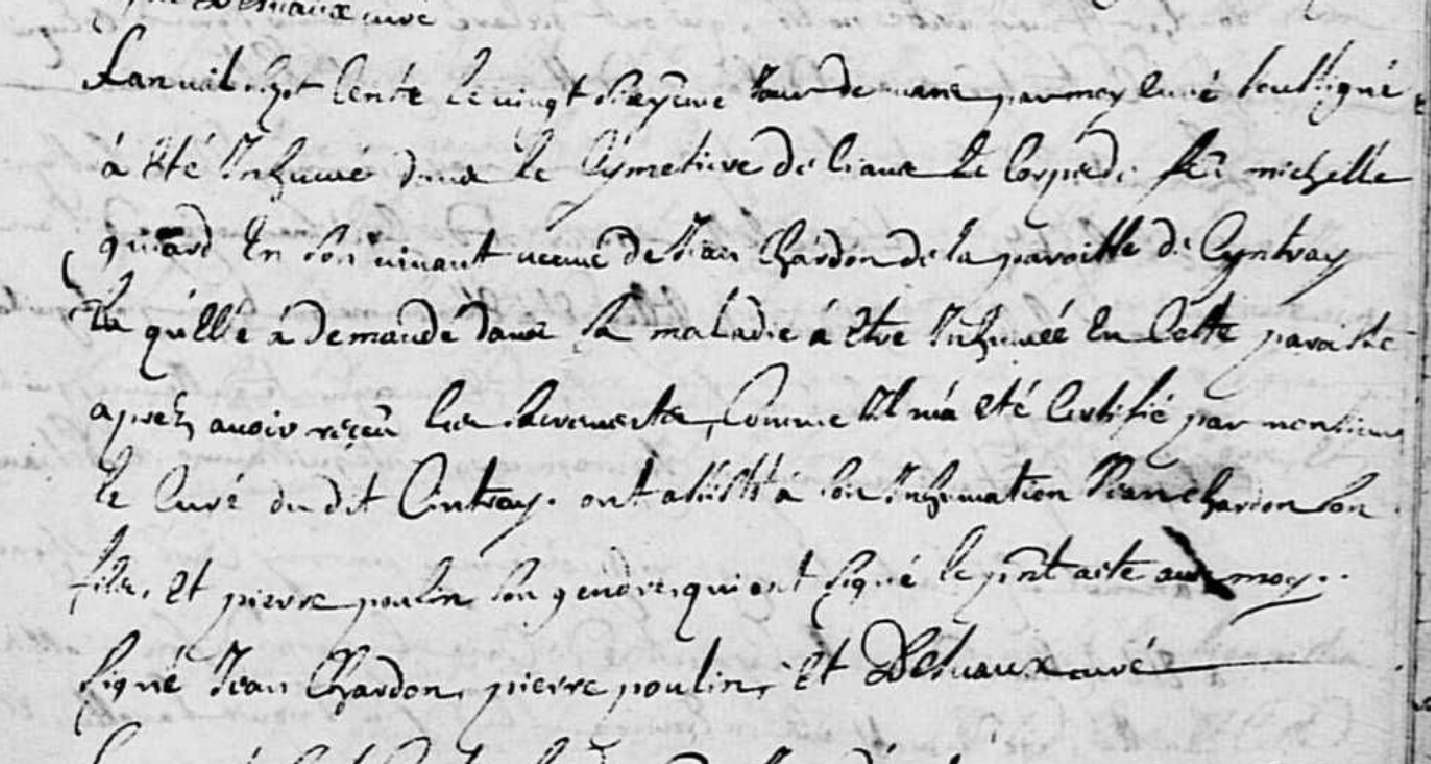 Desvaux curé
L'an mil sept cent le vingt sixyeme Jour de mars par moy Curé soussigné
à été Inhumé dans le Cymetiere de le Corps de feu michelle
guiard En son vivant veuve de Jean Chardon de la paroisse de Cyntray
la quélle à demandé dans sa maladie à etre Inhuméé En Cette paroisse
apréz avoir reçeu les Sacrements, Comme Il m'a eté Certifié par monsieur
le Curé du dit Cintray. ont assisté à son Inhumation Jean Chardon son
fils, Et pierre poulin son gendre, qui ont signé le pñt acte avec moy.
signé Jean Chardon, pierre poulin, et Desvaux curé